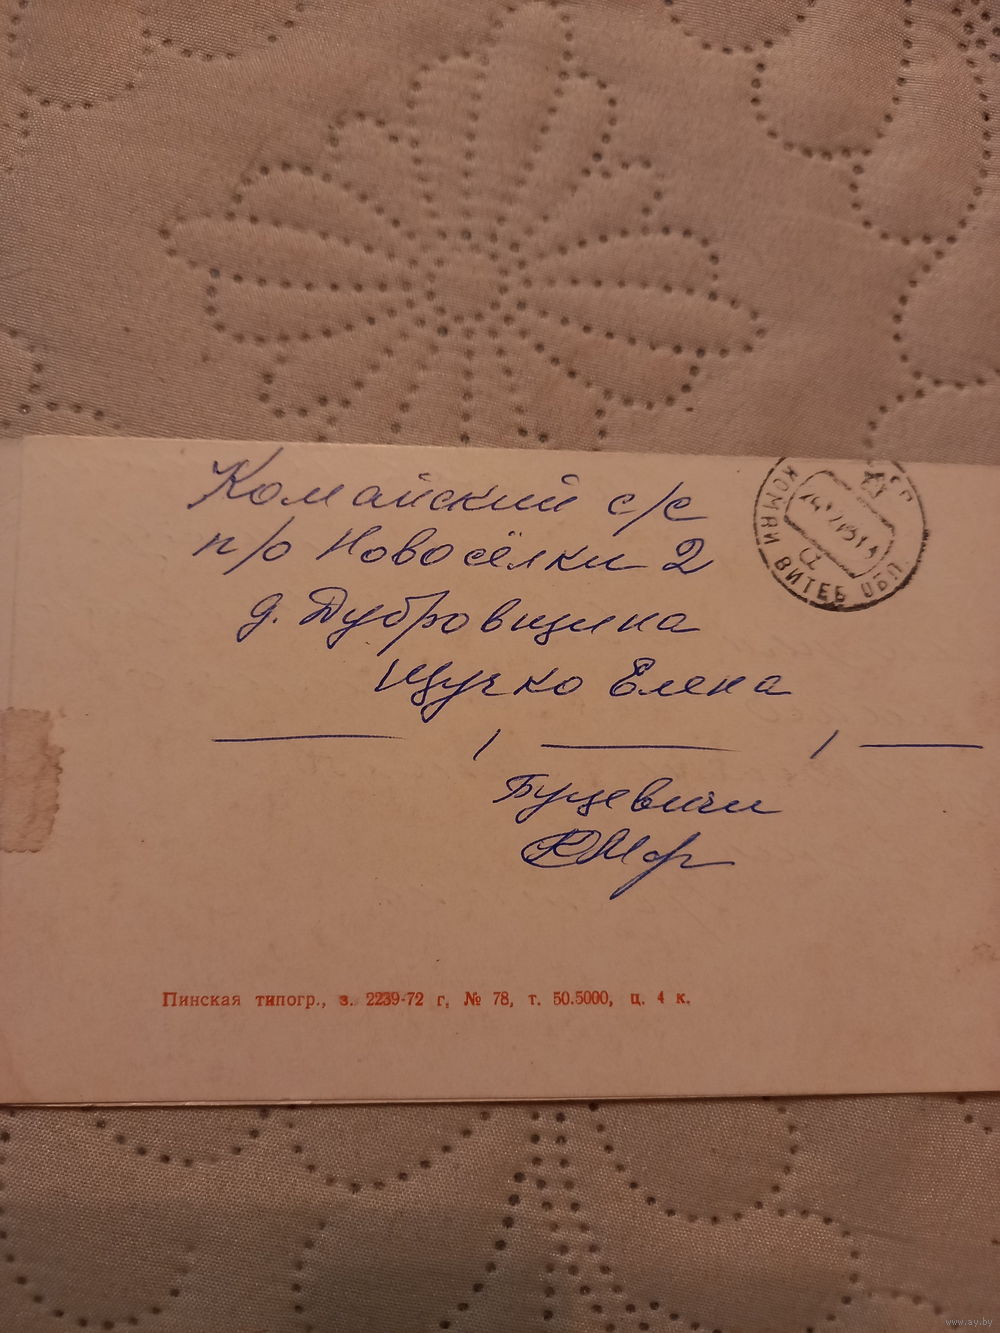 Комайский с/с
п/о Новосёлки 2
д. Дубровщина
Щучко Елена
Буцевичи
КОМАИ ВИТЕБ ОБЛ.
Пинская типогр., з. 2239-72 г, № 78, т. 50.5000, ц. 4 к.
www.ay.by